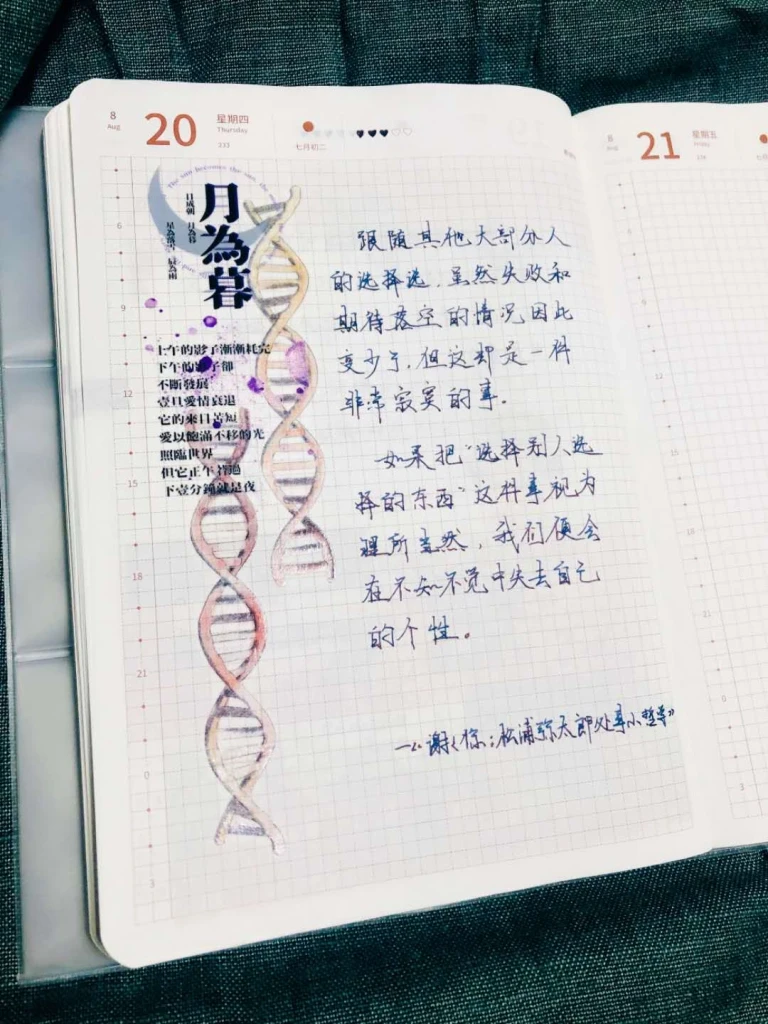 8
Aug
20
星期四
Thursday
233
七月初二
月為暮
日成朝 月為暮
星為落雪 辰為雨
上午的影子漸漸耗完
下午的影子卻
不斷發展
壹旦愛情衰退
它的來日苦短
愛以飽滿不移的光
照臨世界
但它正午皆過
下壹分鐘就是夜
6
9
12
15
18
21
0
3
跟随其他大部分人
的选择选，虽然失败和
期待落空的情况因此
变少了，但这却是一种
非常寂寞的事。
如果把“选择别人选
择的东西”这样事视为
理所当然，我们便会
在不知不觉中失去自己
的个性。
—《谢谢你：松浦弥太郎处事小哲学》
8
Aug
21
星期五
Friday
234
15
18
21
0
3